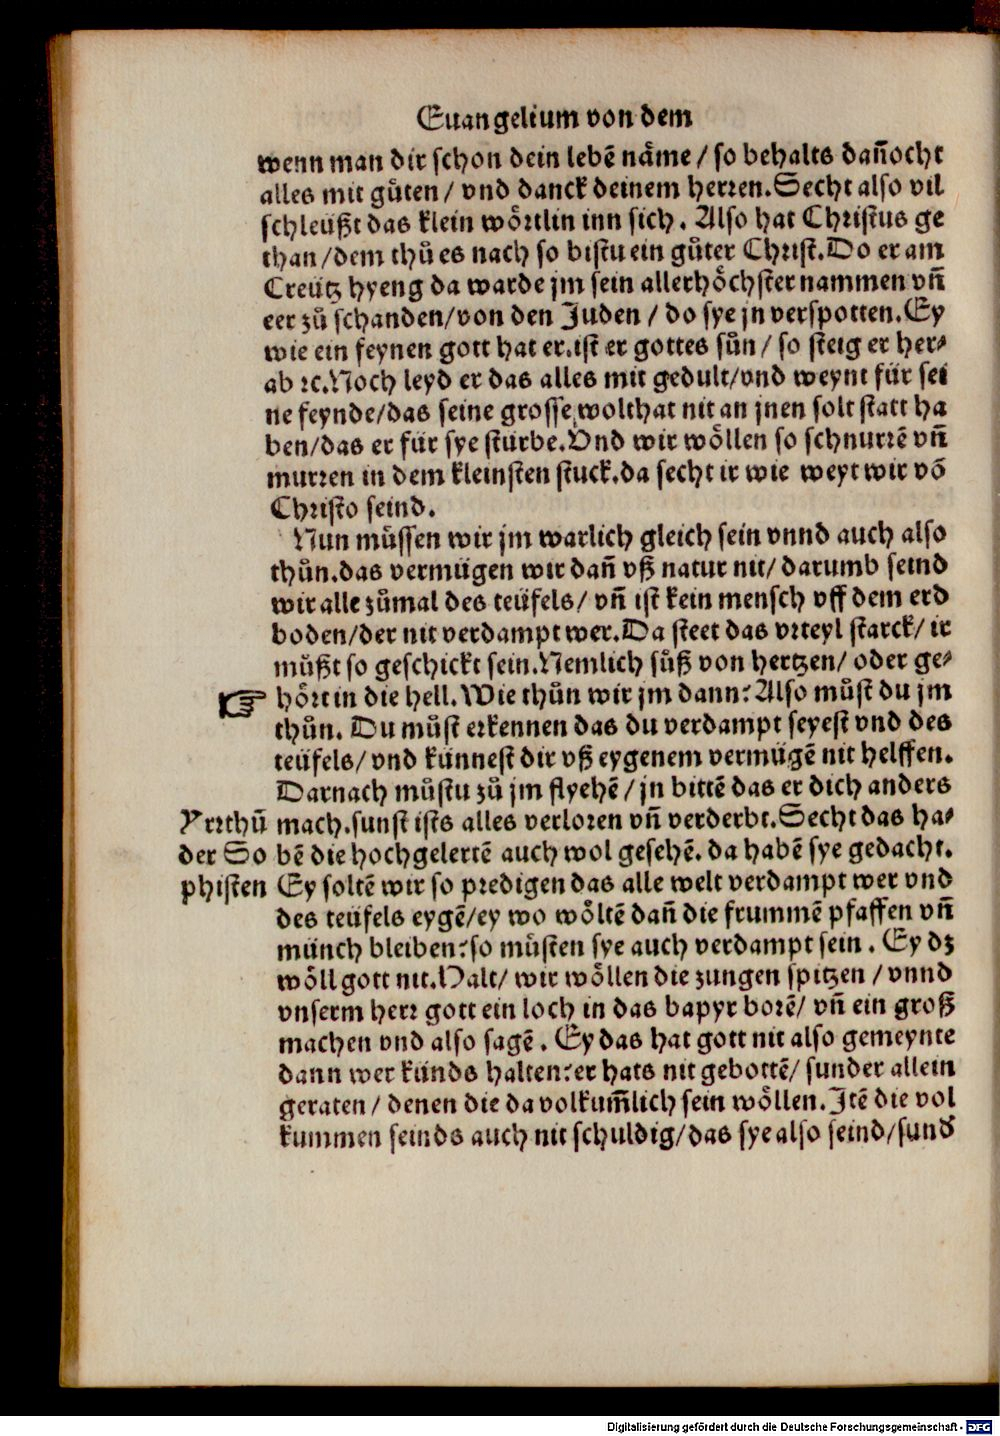 Euangelium von dem
wenn man dir schon dein lebẽ nåme / so behalts dañocht
alles mit gůten / vnd danck deinem herren. Secht also vil
schleüßt das klein wôrtlin inn sich. Also hat Christus ge
than / dem thů es nach so bistu ein gůter Christ. Do er am
Creütz hyeng da warde jm sein allerhôchster nammen vñ
eer zů schanden / von den Juden / do sye jn verspotten. Ey
wie ein feynen gott hat er. ist er gottes sůn / so steig er her⸗
ab ꝛc. Noch leyd er das alles mit gedult / vnd weynt für sei
ne feynde / das seine grosse wolthat nit an jnen solt statt ha
ben / das er für sye stürbe. Vnd wir wôllen so schnurrẽ vñ
murren in dem kleinsten stuck. da secht ir wie weyt wir võ
Christo seind.
Nun müssen wir jm warlich gleich sein vnnd auch also
thůn. das vermügen wir dañ vß natur nit / darumb seind
wir alle zůmal des teüfels / vñ ist kein mensch vff dem erd
boden / der nit verdampt wer. Da steet das vrteyl starck / ir
můßt so geschickt sein. Nemlich sůß von hertzen / oder ge⸗
☞ hôrt in die hell. Wie thůn wir jm dann? Also můst du jm
thůn. Du můst erkennen das du verdampt seyest vnd des
teüfels / vnd künnest dir vß eygenem vermügẽ nit helffen.
Darnach můstu zů jm flyehẽ / jn bittẽ das er dich anders
Yrrthũ mach. sunst ists alles verloren vñ verderbt. Secht das ha⸗
der So bẽ die hochgelertẽ auch wol gesehẽ. da habẽ sye gedacht.
phisten Ey soltẽ wir so predigen das alle welt verdampt wer vnd
des teüfels eygẽ / ey wo wôltẽ dañ die frummẽ pfaffen vñ
münch bleiben? so můsten sye auch verdampt sein. Ey dz
wôll gott nit. Halt / wir wôllen die zungen spitzen / vnnd
vnserm herr gott ein loch in das bapyr borẽ / vñ ein groß
machen vnd also sagẽ. Ey das hat gott nit also gemeynte
dann wer künds halten? er hats nit gebottẽ / sunder allein
geraten / denen die da volkum̃lich sein wôllen. Itẽ die vol
kummen seinds auch nit schuldig / das sye also seind / sund
Digitalisierung gefördert durch die Deutsche Forschungsgemeinschaft - DFG